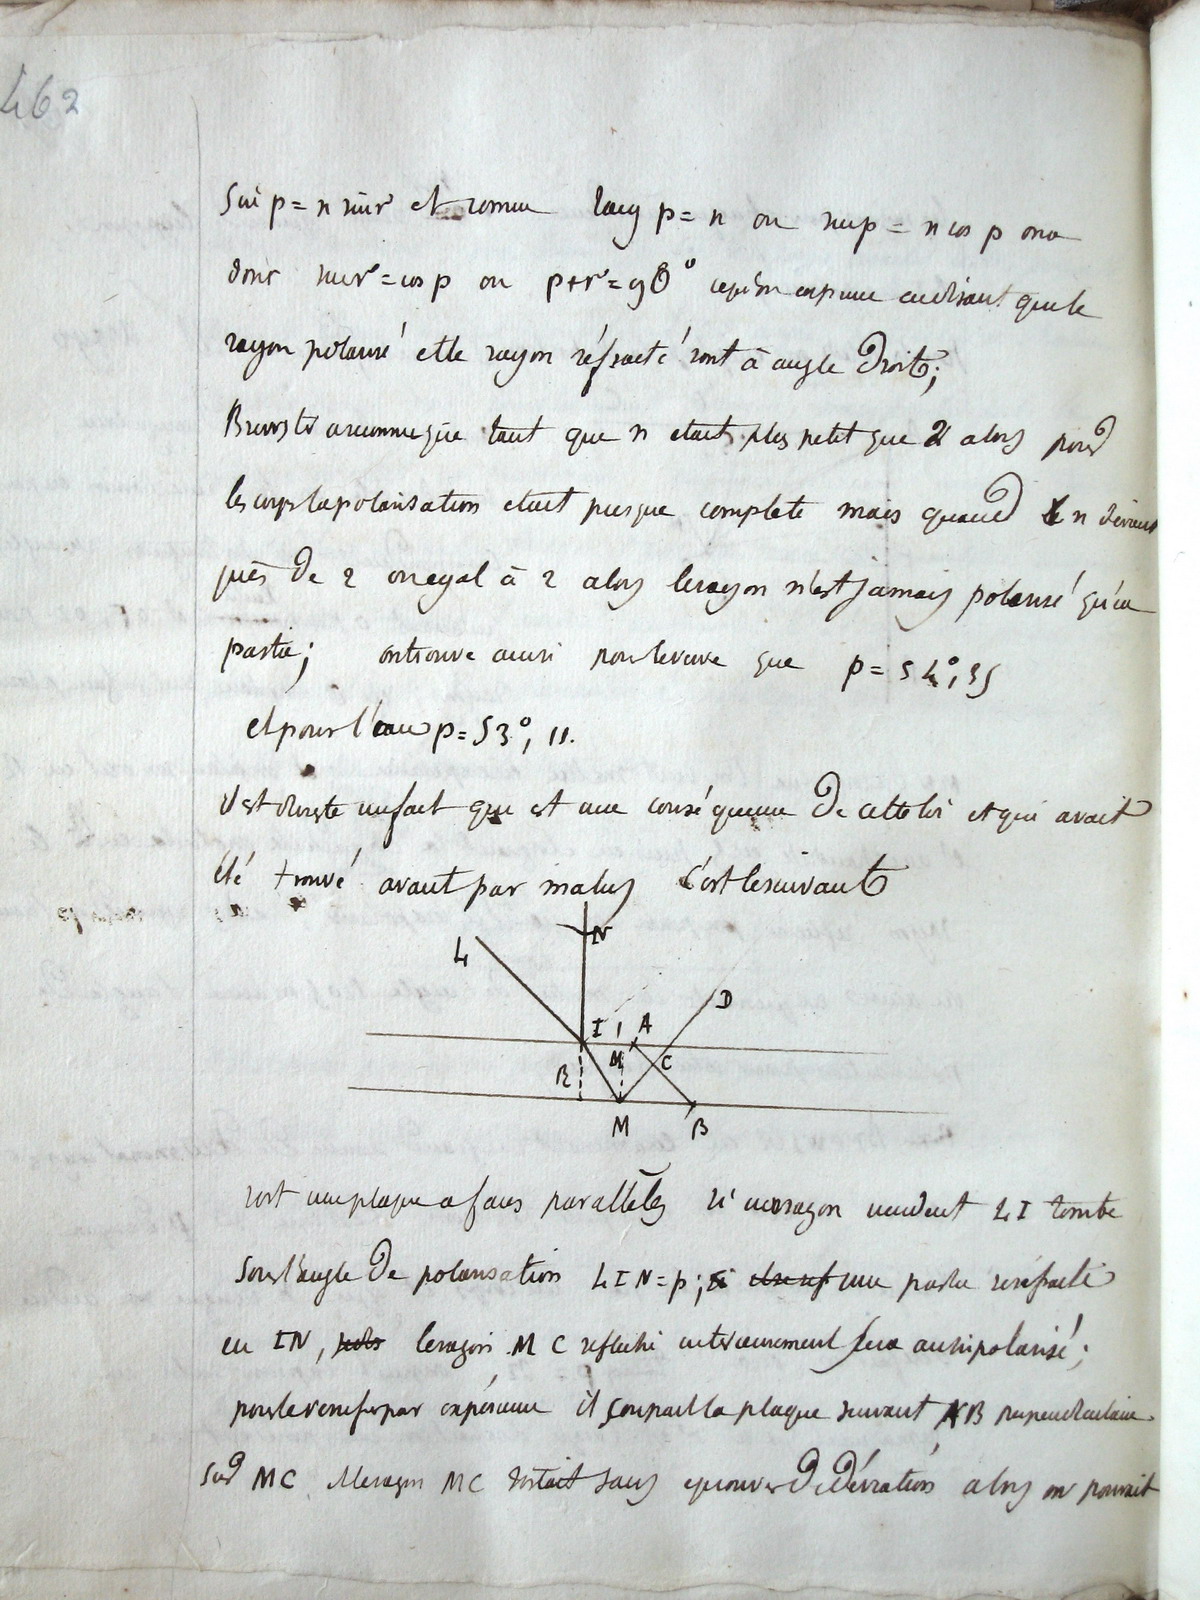 462
Sin p = n sin r et comme tang p = n ou sin p = n cos p on a
donc sin r = cos p ou p + r = 90° ce qu'on exprime en disant que le
rayon polarisé et le rayon réfracté sont à angle Droit;
Brewster a reconnu que tant que n etait plus petit que 2 alors pour
les corps la polarisation etait presque complete mais quand n devient
près De 2 ou egal à 2 alors le rayon n'est jamais polarisé qu'en
partie; on trouve aussi pour le verre que p = 54°, 35
et pour l'eau p = 53°, 11.
il est ensuite un fait qui est une conséquence De cette loi et qui avait
été trouvé avant par malus C'est le suivant
L N
D
I A
M C
R
M B
soit une plaque a faces parallèles si un rayon incident LI tombe
sous l'angle De polarisation LIN = p; une partie se réfracte
en IN, le rayon MC reflechi interieurement sera aussi polarisé;
pour le verifier par expérience il coupait la plaque suivant AB perpendiculaire
sur MC le rayon MC sortait sans eprouver De Déviation alors on pouvait